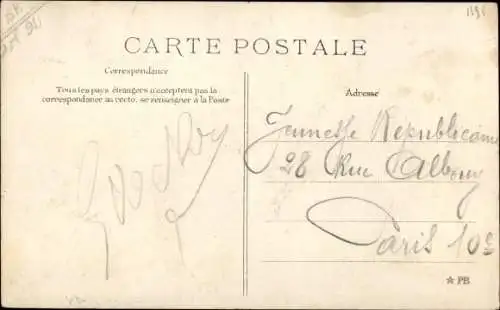 CARTE POSTALE
Correspondance
Tous les pays étrangers n'acceptent pas la
correspondance au recto, se renseigner à la Poste
Adresse
Jeunesse Républicaine
28 Rue Albouy
Paris 10e
★ PB